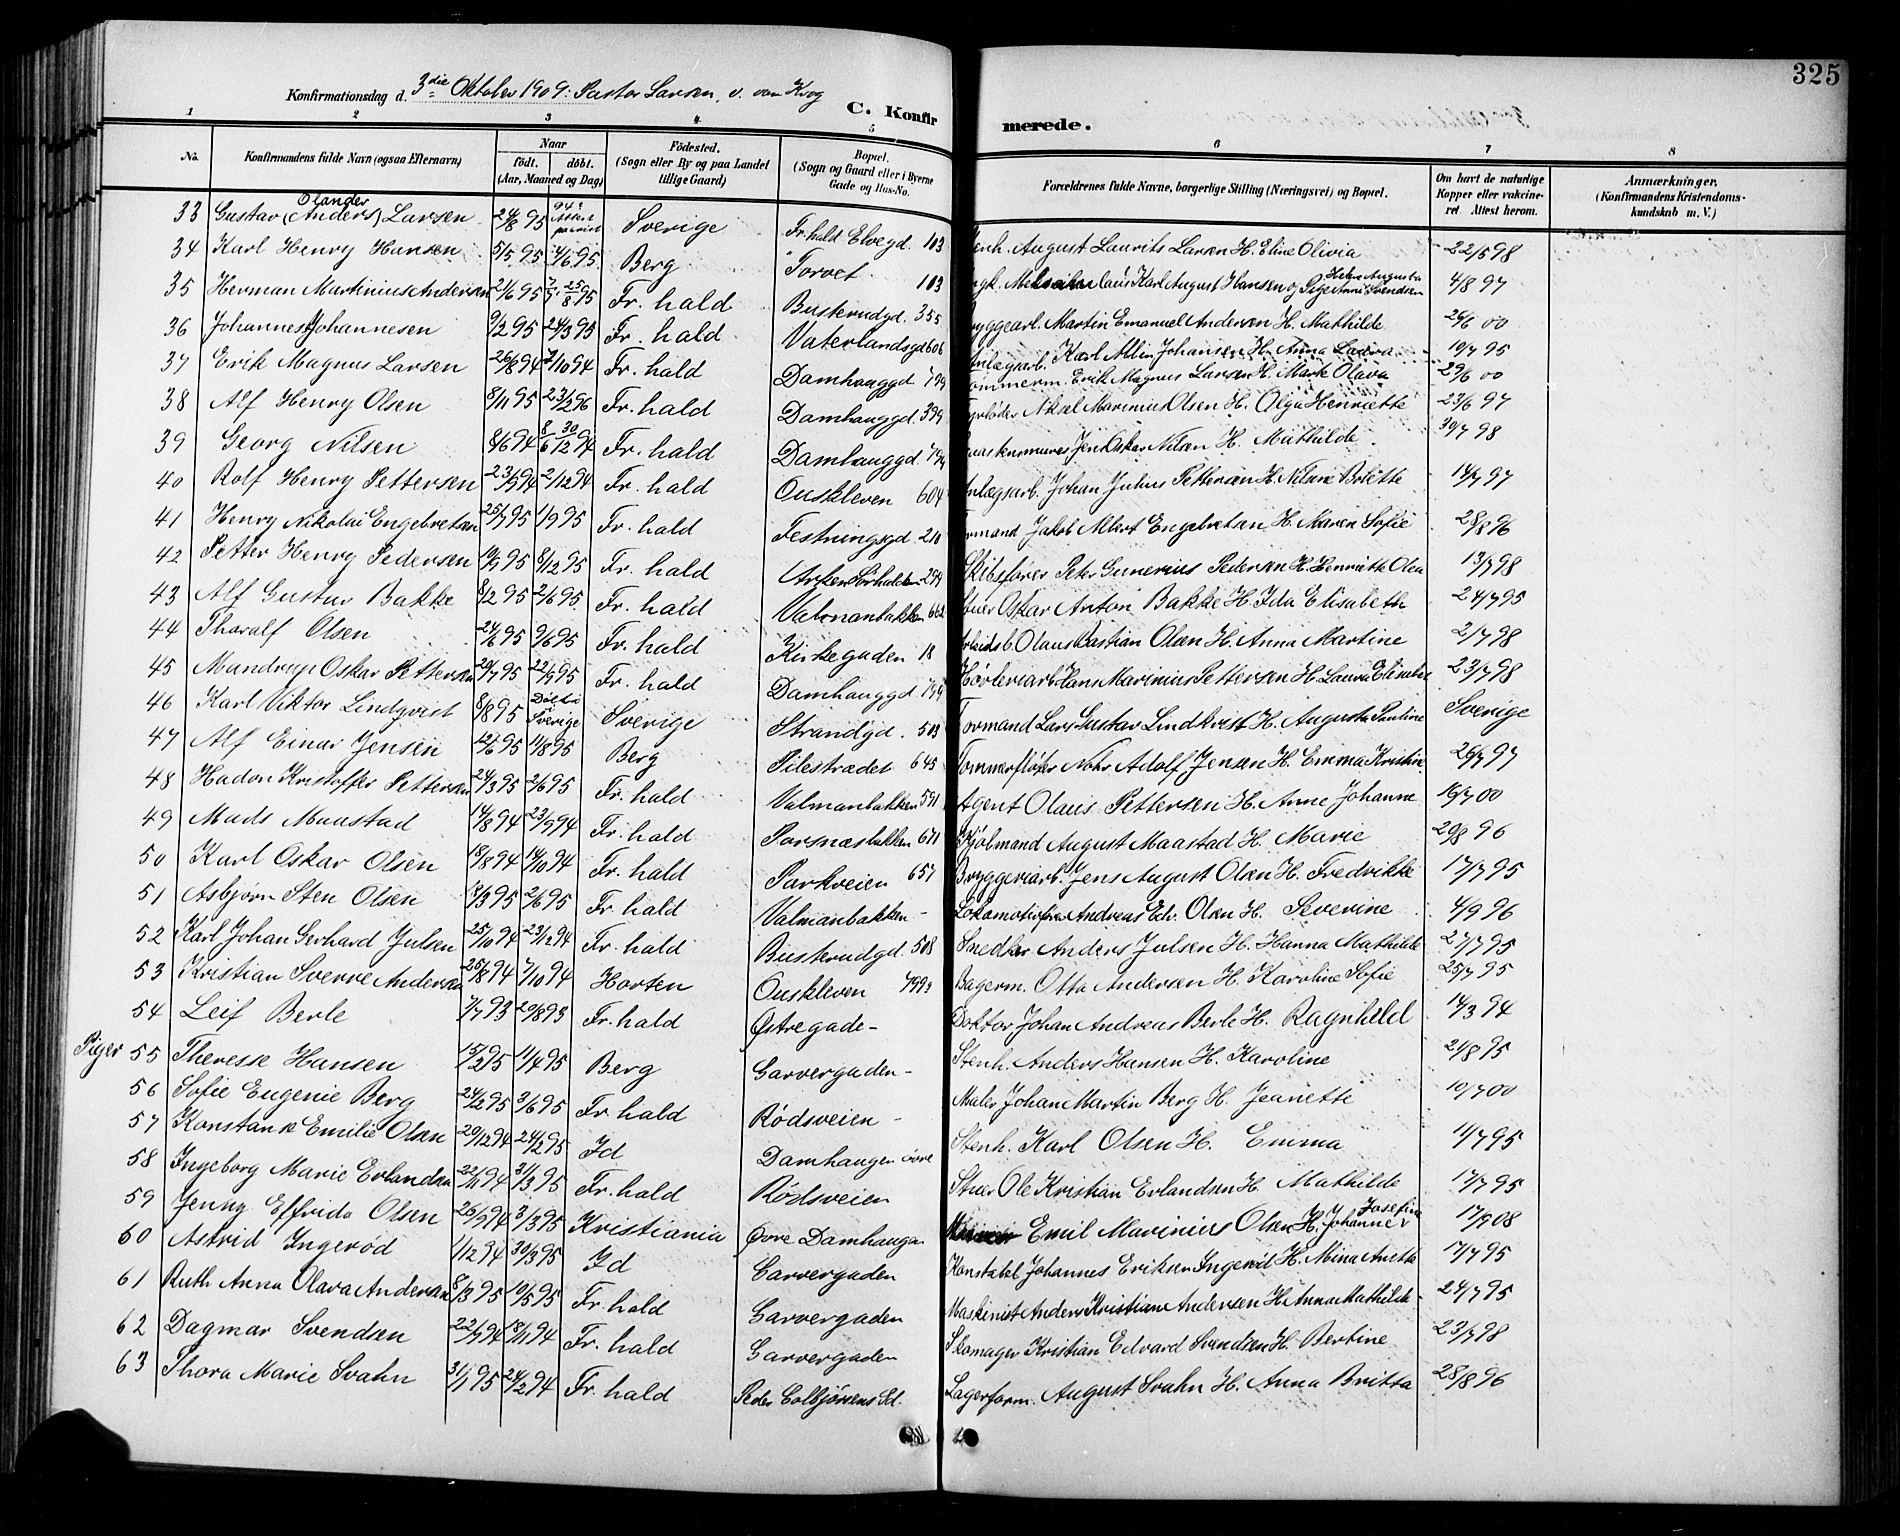 325
Konfirmationsdag d. 3die Oktober 1909: Pastor Larsen, v. van Krog
C. Konfirmerede.
1 2 3 4 5 6 7 8
No. Konfirmandens fulde Navn (ogsaa Efternavn) Naar født. døbt. (Aar, Maaned og Dag) Fødested. (Sogn eller By og paa Landet tillige Gaard) Bopæl. (Sogn og Gaard eller i Byerne Gade og Hus-No. Forældrenes fulde Navne, borgerlige Stilling (Næringsvei) og Bopæl. Om havt de naturlige Kopper eller vakcineret. Attest herom. Anmærkninger. (Konfirmandens Kristendomskundskab m. V.)
Olander
33 Gustav (Anders) Larsen 24/8 95 Sverige Fr.hald Elvegd. 103 August Laurits Larsen H. Eline Olivia 22/5 98
34 Karl Henry Hansen 5/5 95 4/6 95 Berg Torvet 103 Karl August Hansen og Svendsen 4/8 97
35 Herman Martinius Andersen 21/6 95 25/8 95 Fr. hald Buskerudgd. 355 Bryggearb. Martin Emanuel Andersen H. Mathilde 26/6 00
36 Johannes Johannesen 9/2 95 24/3 95 Fr. hald Vaterlandsgd 606 Anlægsarb. Karl Albin Johansen H. Anna Laura 10/7 95
37 Erik Magnus Larsen 26/8 94 7/10 94 Fr. hald Damhauggd. 799 Tømmerm. Erik Magnus Larsen H. Mark Olava 29/6 00
38 Alf Henry Olsen 8/11 95 23/2 96 Fr. hald Damhauggd. 399 Fyrbøder Aksel Marinius Olsen H. Olga Henriette 23/6 97
39 Georg Nilsen 8/6 94 30/12 94 Fr. hald Damhauggd. 794 Jens Oskar Nilsen H. Mathilde 30/7 98
40 Rolf Henry Pettersen 23/9 94 2/12 94 Fr. hald Ouskleven 604 Anlægsarb. Johan Julius Pettersen H. Nilsine Britte 14/7 97
41 Henry Nikolai Engebretsen 25/7 95 1/9 95 Fr. hald Festningsgd. 210 Formand Jakob Albert Engebretsen H. Maren Sofie 28/8 96
42 Petter Henry Pedersen 10/7 95 8/12 95 Fr. hald 299 Skibsfører Peter Gunerius Pedersen H. Henriette Olea 13/7 98
43 Alf Gustav Bakke 8/2 95 2/6 95 Fr. hald Valmanbakken 662 Stuer Oskar Anton Bakke H. Ida Elisabeth 24/7 95
44 Thoralf Olsen 24/6 95 9/6 95 Fr. hald Kirkegaden 18 Arbeidsb. Olaus Bastian Olsen H. Anna Martine 2/7 98
45 Mandrup Oskar Pettersen 20/7 95 22/9 95 Fr. hald Damhauggd 799 Høvleriarb. Hans Marinius Pettersen H. Laura Elisabet 23/7 98
46 Karl Viktor Lindqvist 8/8 95 Døbt i Sverige Sverige Strandgd. 503 Formand Lars Gustav Lindkvist H. Augusta Pauline Sverige
47 Alf Einar Jensen 12/6 95 11/8 95 Berg Pilestrædet 645 Tømmerfløter Nohr Adolf Jensen H. Emma Kristine 26/7 97
48 Hadon Kristoffer Pettersen 24/3 95 2/6 95 Fr. hald Valmanbakken 591 Agent Olaus Pettersen H. Anne Johanne 19/7 00
49 Mads Maastad 14/8 94 23/9 94 Fr. hald Porsnæsbakken 671 August Maastad H. Marie 29/8 96
50 Karl Oskar Olsen 18/8 94 14/10 94 Fr. hald Parkveien 657 Bryggeriarb. Jens August Olsen H. Fredrikke 17/7 95
51 Asbjørn Sten Olsen 13/3 95 2/6 95 Fr. hald Valmanbakken - Lokomotivfører Andreas Edv. Olsen H. Severine 4/9 96
52 Karl Johan Gerhard Julsen 25/10 94 23/12 94 Fr. hald Buskerudgd. 508 Snedker Anders Julsen H. Hanna Mathilde 27/7 95
53 Kristian Sverre Andersen 25/8 94 7/10 94 Horten Ouskleven 799 Bagerm. Otto Andersen H. Karoline Sofie 25/7 95
54 Leif Berle 7/7 93 20/8 93 Fr. hald Østregade - Doktor Johan Andreas Berle H. Ragnhild 14/3 94
Piger 55 Theresse Hansen 15/2 95 11/4 95 Berg Garvergaden - Stenh. Anders Hansen H. Karoline 21/8 95
56 Sofie Eugenie Berg 24/2 95 3/6 95 Fr. hald Rødsveien - Maler Johan Martin Berg H. Jeanette 10/7 00
57 Konstanse Emilie Olsen 20/12 94 24/2 95 Id Damhaugen øvre Stenh. Karl Olsen H. Emma 11/7 95
58 Ingeborg Marie Erlandsen 22/11 94 31/3 95 Fr. hald Rødsveien Stuer Ole Kristian Erlandsen H. Mathilde 17/7 95
59 Jenny Elfrida Olsen 26/9 94 31/3 95 Kristiania Øvre Damhaugen Emil Marinius Olsen H. Johanne Josefine 17/9 08
60 Astrid Ingerød 1/12 94 30/3 95 Id Garvergaden Konstabel Johannes Eriksen Ingerød H. Mina Anette 17/7 95
61 Ruth Anna Olava Andersen 8/3 95 19/5 95 Fr. hald Garvergaden Maskinist Anders Kristian Andersen H. Anna Mathilde 24/7 95
62 Dagmar Svendsen 22/7 94 18/11 94 Fr. hald Garvergaden Skomager Kristian Edvard Svendsen H. Bertine 23/7 98
63 Thora Marie Svahn 31/1 95 24/2 94 Fr. hald Peder Colbjørnsens Gd. Lagerform. August Svahn H. Anna Britta 28/8 96